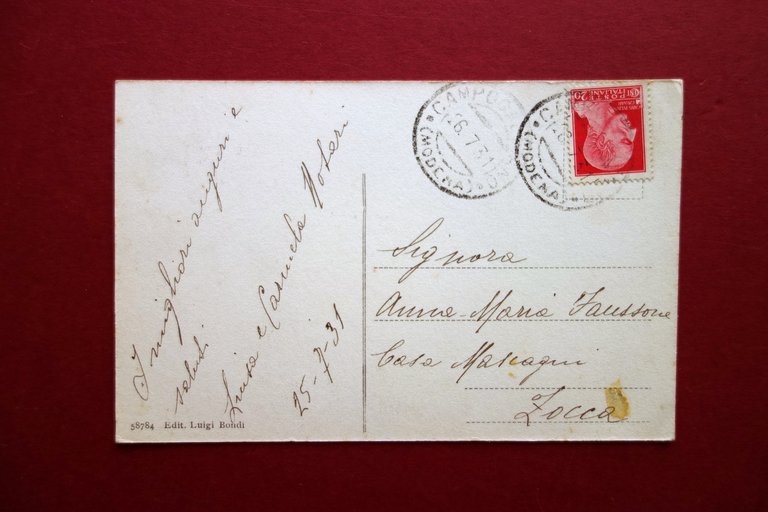 I migliori auguri e
saluti
Luisa e Carmela Noleri
25-7-31
58784 Edit. Luigi Bondi
(MODENA)
26.7.31
(MODENA)
POSTE
ITALIANE
20
Signora
Anna Maria Faussone
Casa Mascagni
Zocca